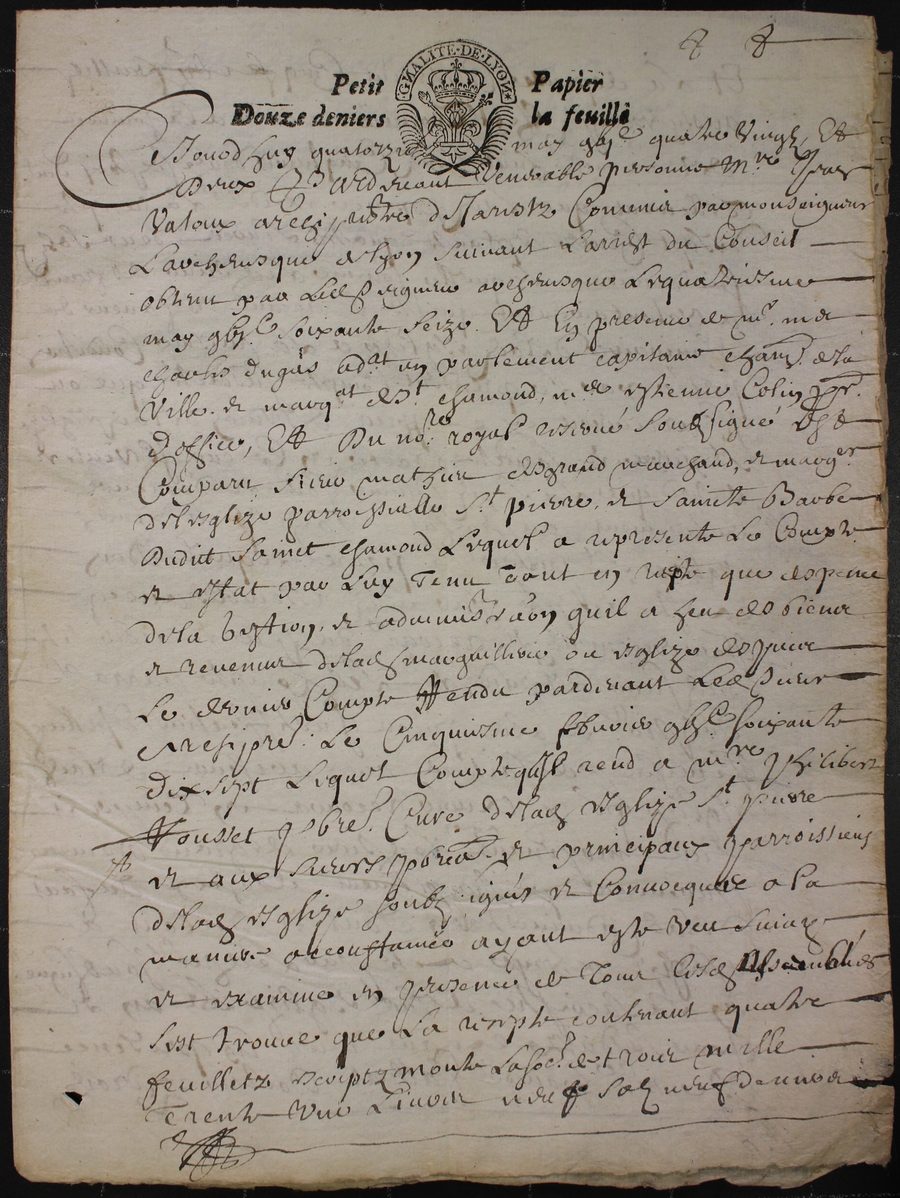 GNALITE·DE·LYON
Petit Papier
Douze deniers la feuille
Cejourdhuy quatorzie may gbjc quatre vingtz Et
Deux Pardevant Venerable personne Mre Jean
Vatoux archipbtre de Commis par monseigneur
Larchevesque de Lyon suivant Larrest du Conseil
obtenu par Led Seigneur archevesque Le quatriesme
may gbjc soixante seize. Et En presence de mr. me
charles dugas adat en parlement capitaine chatn dela
Ville. et marqat de St chamond, me. estienne Colin pr.
d'office, Et Du nore royal reservé soubsigné est
Comparu sieur mathieu desgrand marchand, et marger
de lesglize parrochialle St pierre, et saincte Barbe
Dudit sainct chamond Lequel a represente Le Compte
et estat par Luy Tenu tant en recepte que despence
dela gestion, et administraon quil a heu des biens
et revenus delad marguillerie ou esglize despuis
Le dernier Compte Rendu pardevant Led sieur
archipre. Le Cinquiesme febvrier gbjc soixante
Dix sept Lequel Compte quil rend a mre philibert
Rousset pbre. Cure delad esglize St pierre
et aux sieurs pbres. et principaux parroissiens
delad esglize soubzsignés et Convocques a la
maniere accoustumeé ayant este veu
et examine en presence de Tous Lesd Assemblés
sest trouvé que La recepte contenant quatre
feuilletz escriptz monte La so. de trois mille
Trente une Livres neuf solz neuf deniers